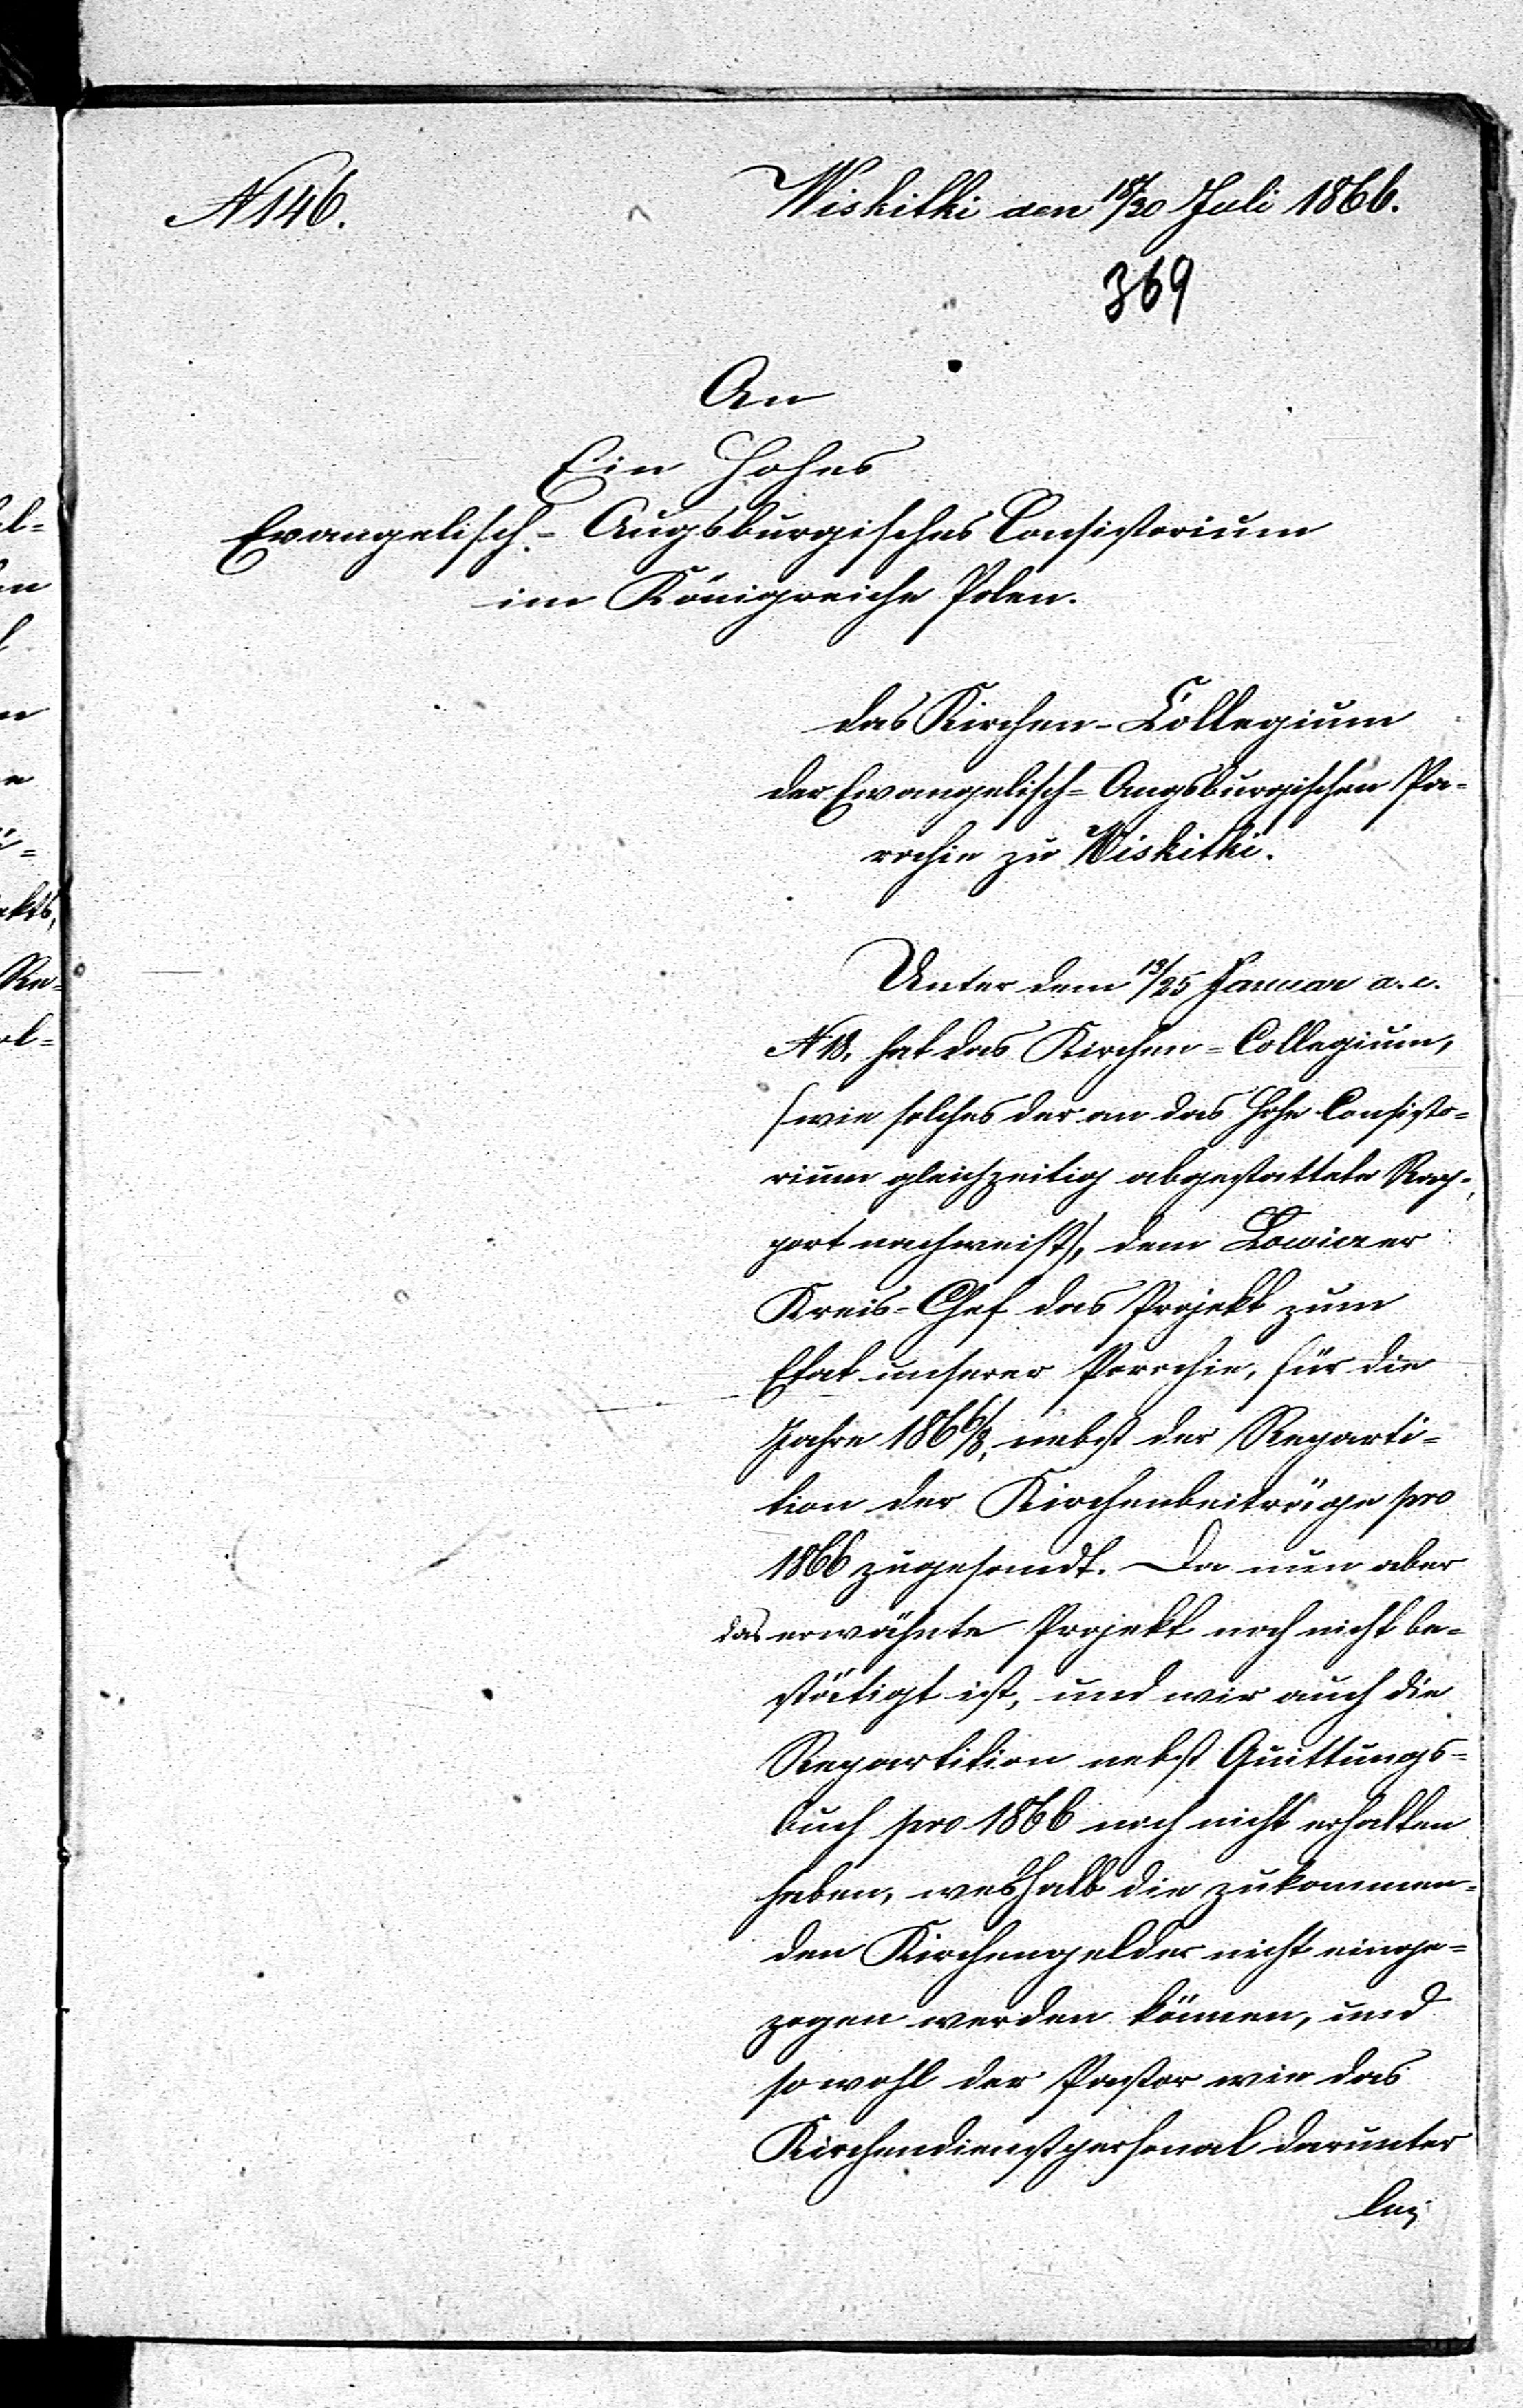 N 146.
Wiskitki den 18/30 Juli 1866.
369
An
Ein Hohes
Evangelisch-Augsburgisches Consistorium
im Königreiche Polen.
das Kirchen-Collegium
der Evangelisch-Augsburgischen Pa-
rochie zu Wiskitki.
Unter dem 13/25 Januar a. c.
N 18. hat das Kirchen-Collegium,
(wie solches der an das Hohe Consisto-
rium gleichzeitig abgestattete Rap-
port nachweist), dem Lowicz er
Kreis-Chef das Projekt zum
Etat unserer Parochie, für die
Jahre 1866/8, nebst der Reparti-
tion der Kirchenbeiträge pro
1866 zugesandt. Da nun aber
das erwähnte Projekt noch nicht be-
stätigt ist, und wir auch die
Repartition nebst Quittungs-
buch pro 1866 noch nicht erhalten
haben, weshalb die zukommen-
den Kirchengelder nicht einge-
zogen werden können, und
sowohl der Pastor wie das
Kirchendienstpersonal darunter
lei
el-
en
n
e
i-
ekts,
Re-
el-